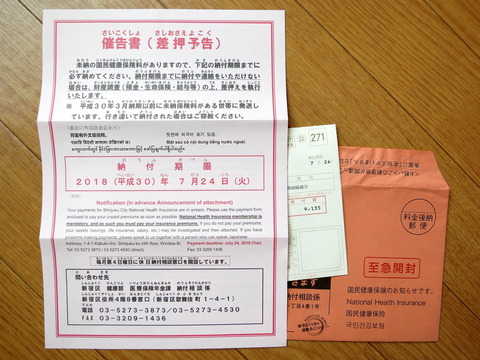 さいこくしょ さしおさえよこく
催告書（差押予告）
未納の国民健康保険料がありますので、下記の納付期限までに
必ず納めてください。納付期限までに納付や連絡をいただけない
場合は、財産調査（預金・生命保険・給与等）の上、差押えを執行
いたします。
※ 平成30年3月期以前に未納保険料がある世帯に発送し
ています。行き違いで納付された場合はご容赦ください。
のうふきげん
納付期限
2018（平成30）年 7月24日（火）
Notification (In advance Announcement of attachment)
Your payments for Shinjuku City National Health Insurance are in arrears. Please use the payment form
enclosed to pay your unpaid premiums as soon as possible. National Health Insurance membership is
mandatory, and as such you must pay your insurance premiums. If you do not pay your premiums,
your assets (savings, life insurance, salary, etc) may be investigated and then attached. If you have
problems making payments, please speak to us together with a person who can speak Japanese
Address: 1-4-1 Kabuki-cho, Shinjuku-ku (4th floor, Window 8) Payment deadline: July 24, 2018 (Tue)
Tel: 03-5273-3873, 03-5273-4530
毎月第4日曜日に休日納付相談窓口を開設しています。
問い合わせ先
新宿区 健康部 医療保険年金課 納付相談係
新宿区役所4階8番窓口（新宿区歌舞伎町1-4-1）
電話 03-5273-3873・03-5273-4530
FAX 03-3209-1436
公
271
7 24
9,135
料金後納
郵便
至急開封
国民健康保険のお知らせです。
National Health Insurance
国民健康保险
국민건강보험
納付相談係